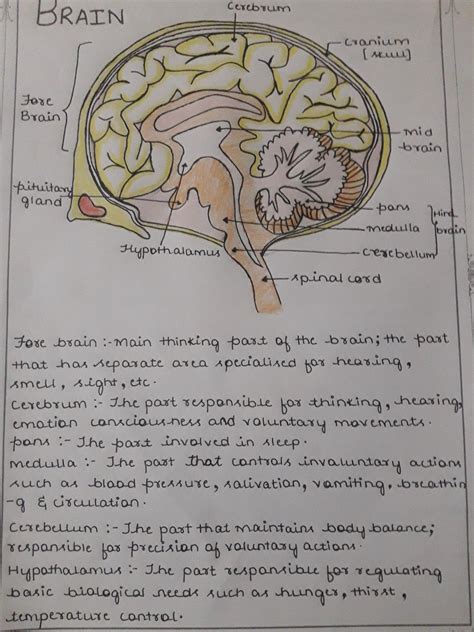 BRAIN
Cerebrum
Cranium
[skull]
Fore
Brain
mid
brain
pituitary
gland
pons
Hind
brain
medulla
Hypothalamus
cerebellum
spinal cord
Fore brain :- Main thinking part of the brain; the part
that has separate area specialised for hearing,
smell, sight, etc.
Cerebrum :- The part responsible for thinking, hearing,
emotion consciousness and voluntary movements.
pons :- The part involved in sleep.
Medulla :- The part that controls involuntary actions
such as blood pressure, salivation, vomiting, breathin
-g & circulation.
Cerebellum :- The part that maintains body balance;
responsible for precision of voluntary actions.
Hypothalamus :- The part responsible for regulating
basic biological needs such as hunger, thirst,
temperature control.